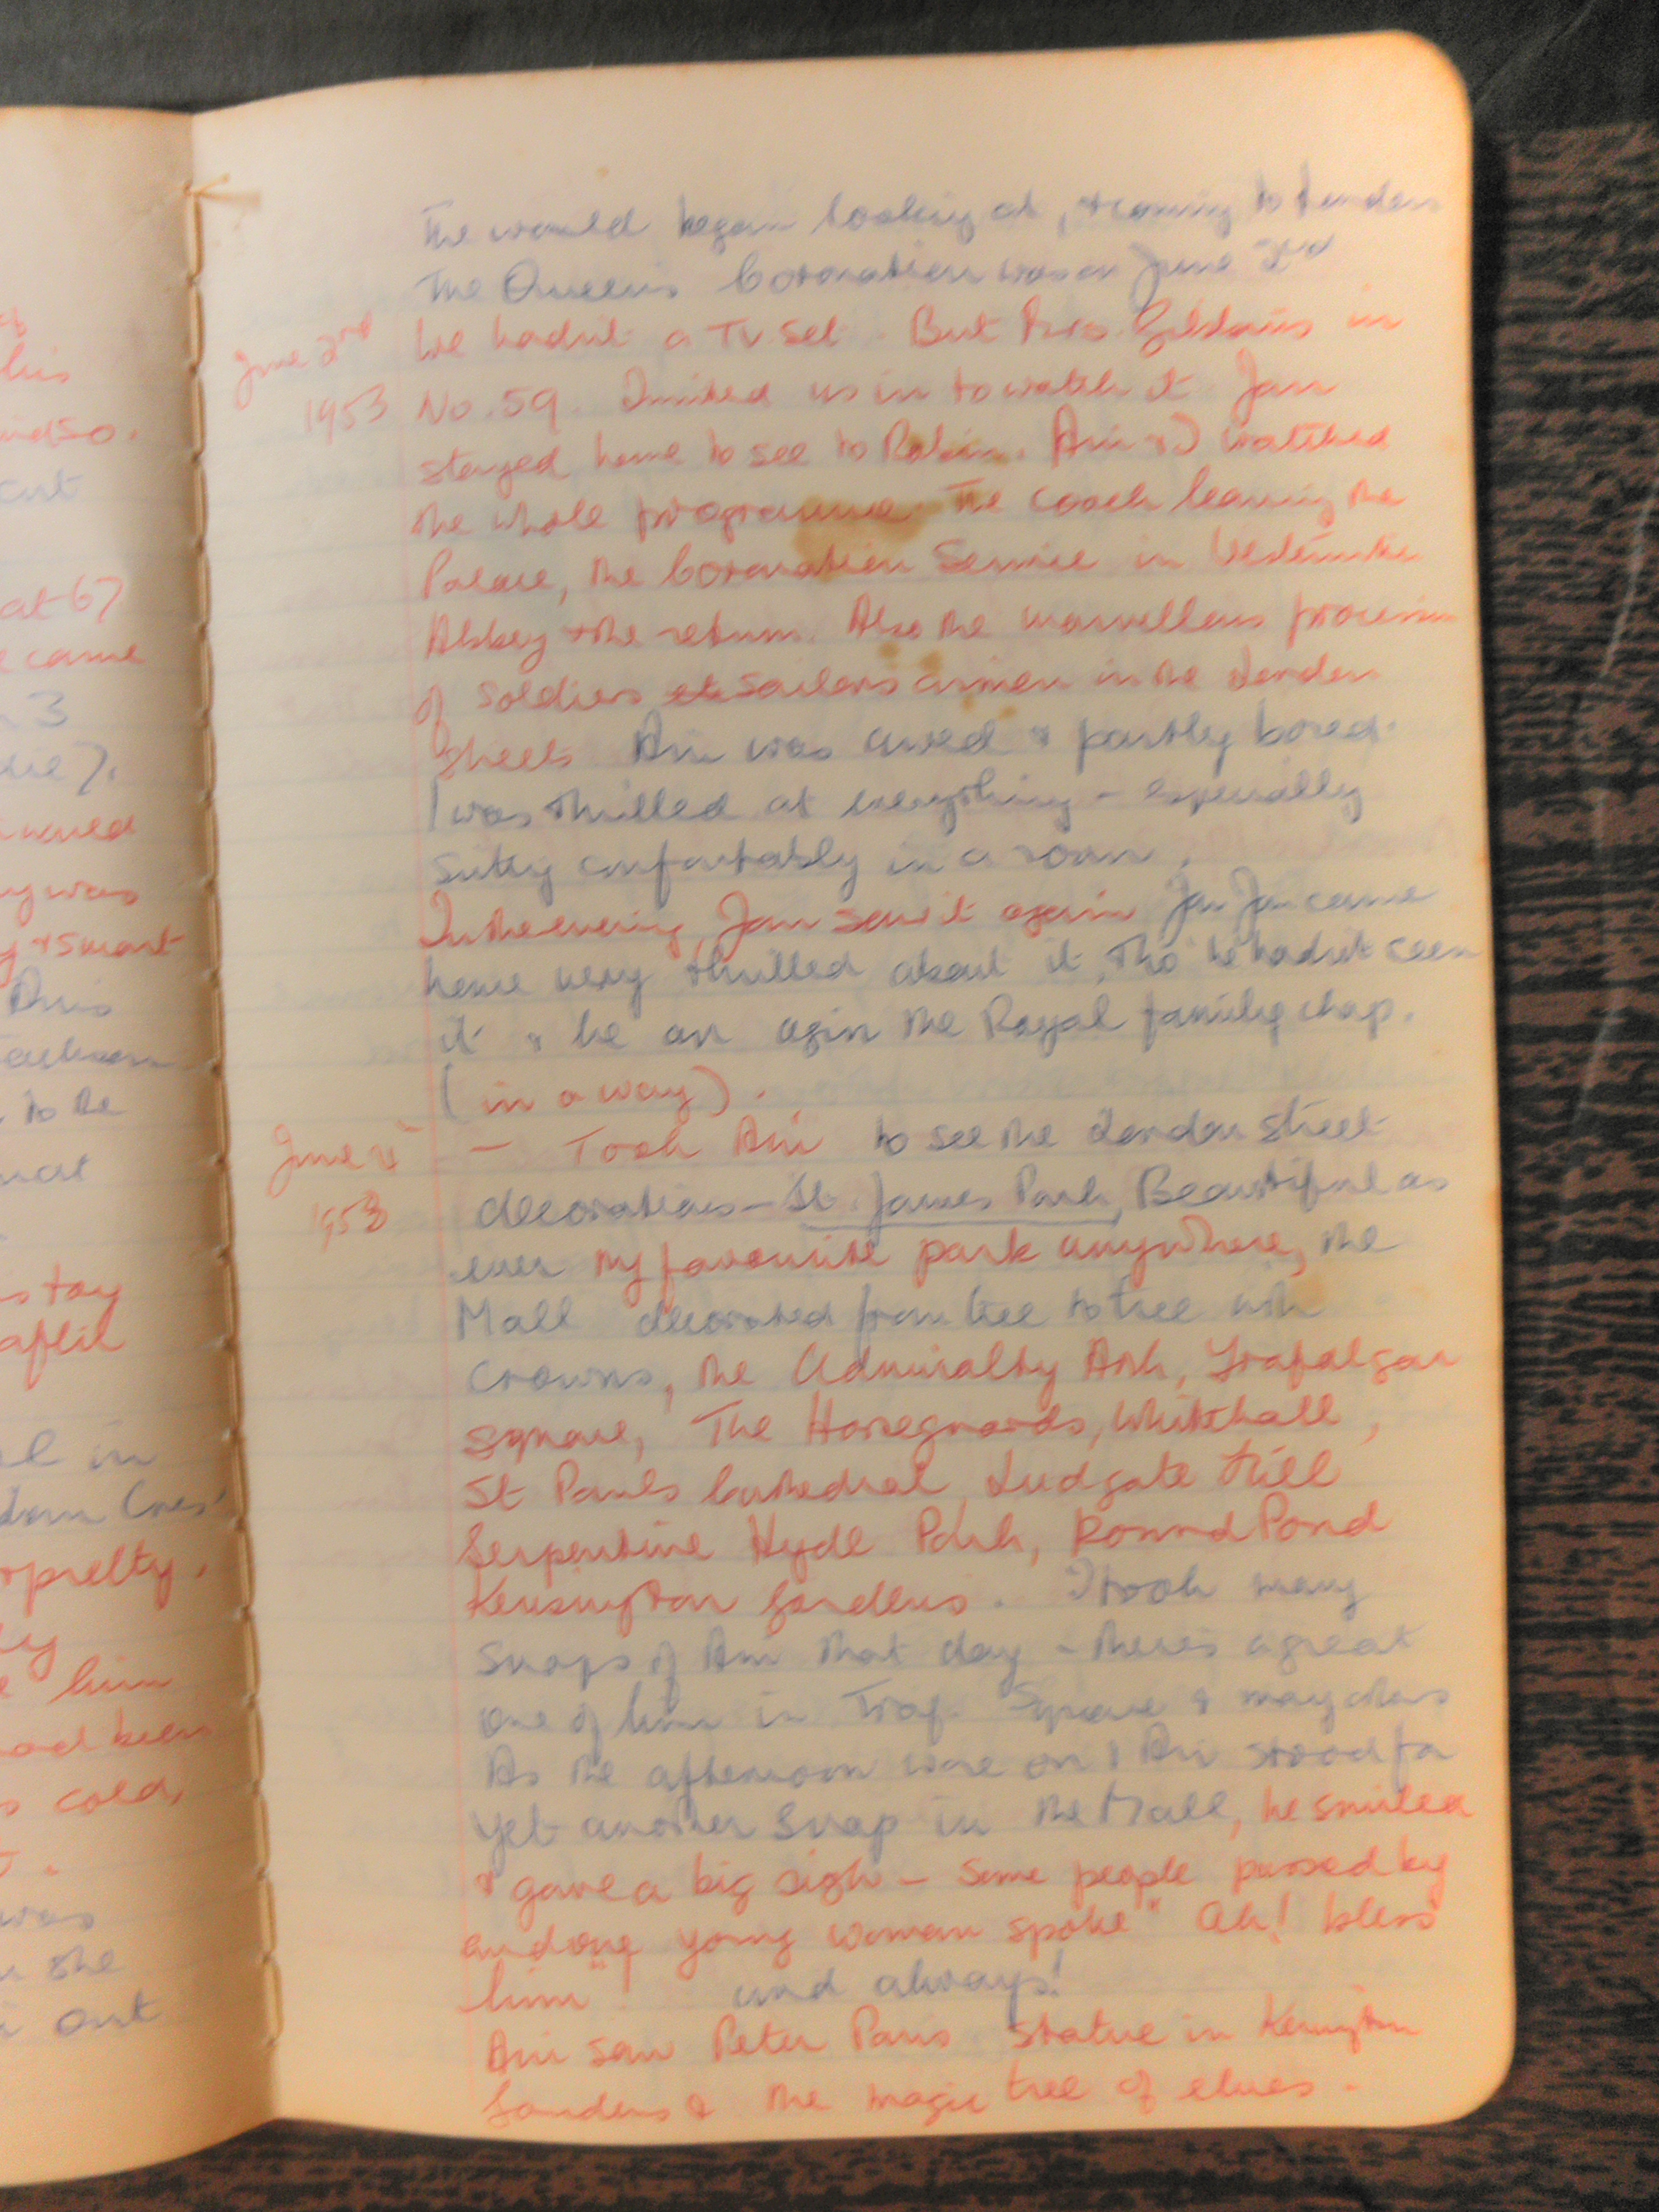 his
at 67
came
3
was
& smart
to the
stay
in
pretty,
him
had been
cold,
was
she
out
The world began looking at, & coming to London
The Queen's Coronation was on June 2nd
June 2nd
1953
We hadn't a TV set. But Mrs. in
No. 59. Invited us in to watch it. Jan
stayed home to see to Robin. Ain & I watched
the whole programme. The coach leaving the
Palace, the Coronation Service in Westminster
Abbey & the return. Also the marvellous procession
of soldiers sailors airmen in the London
streets. Ain was awed & partly bored.
I was thrilled at everything - especially
sitting comfortably in a room.
In the evening, Jan saw it again Jan came
home very thrilled about it, tho' he hadn't seen
it & he an agin the Royal family chap.
(in a way).
June 4
1953
- Took Ain to see the London street
decorations - St. James Park, Beautiful as
ever my favourite park anywhere, the
Mall decorated from tree to tree with
crowns, the Admiralty Arch, Trafalgar
Square, The Horseguards, Whitehall,
St Pauls Cathedral, Ludgate Hill
Serpentine Hyde Park, Round Pond
Kensington Gardens. I took many
snaps of Ain that day - there's a great
one of him in Traf. Square & many others
As the afternoon wore on & Ain stood for
yet another snap in the Mall, he smiled
& gave a big sigh - Some people passed by
and one young woman spoke "Ah! bless
him"! and always!
Ain saw Peter Pans statue in Kensington
Gardens & the magic tree of elves.